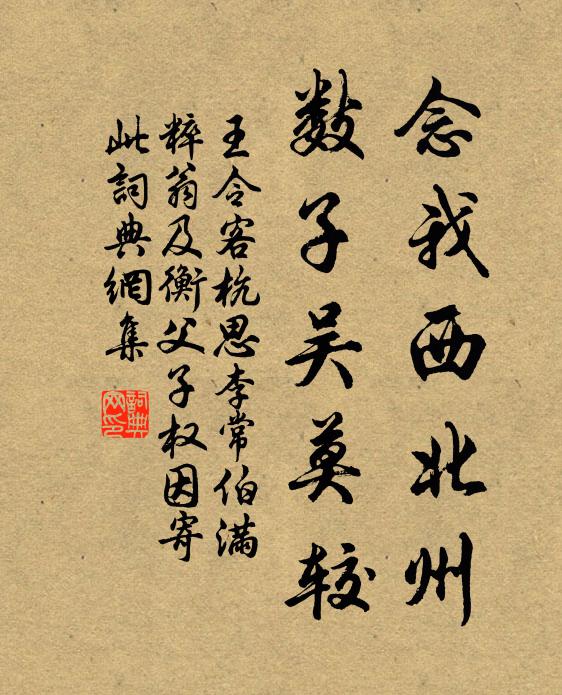 念我西北州
数子吴莫较
王令客杭思李常伯满
粹翁及衡父子权因寄
此詞典網集
詞典网印